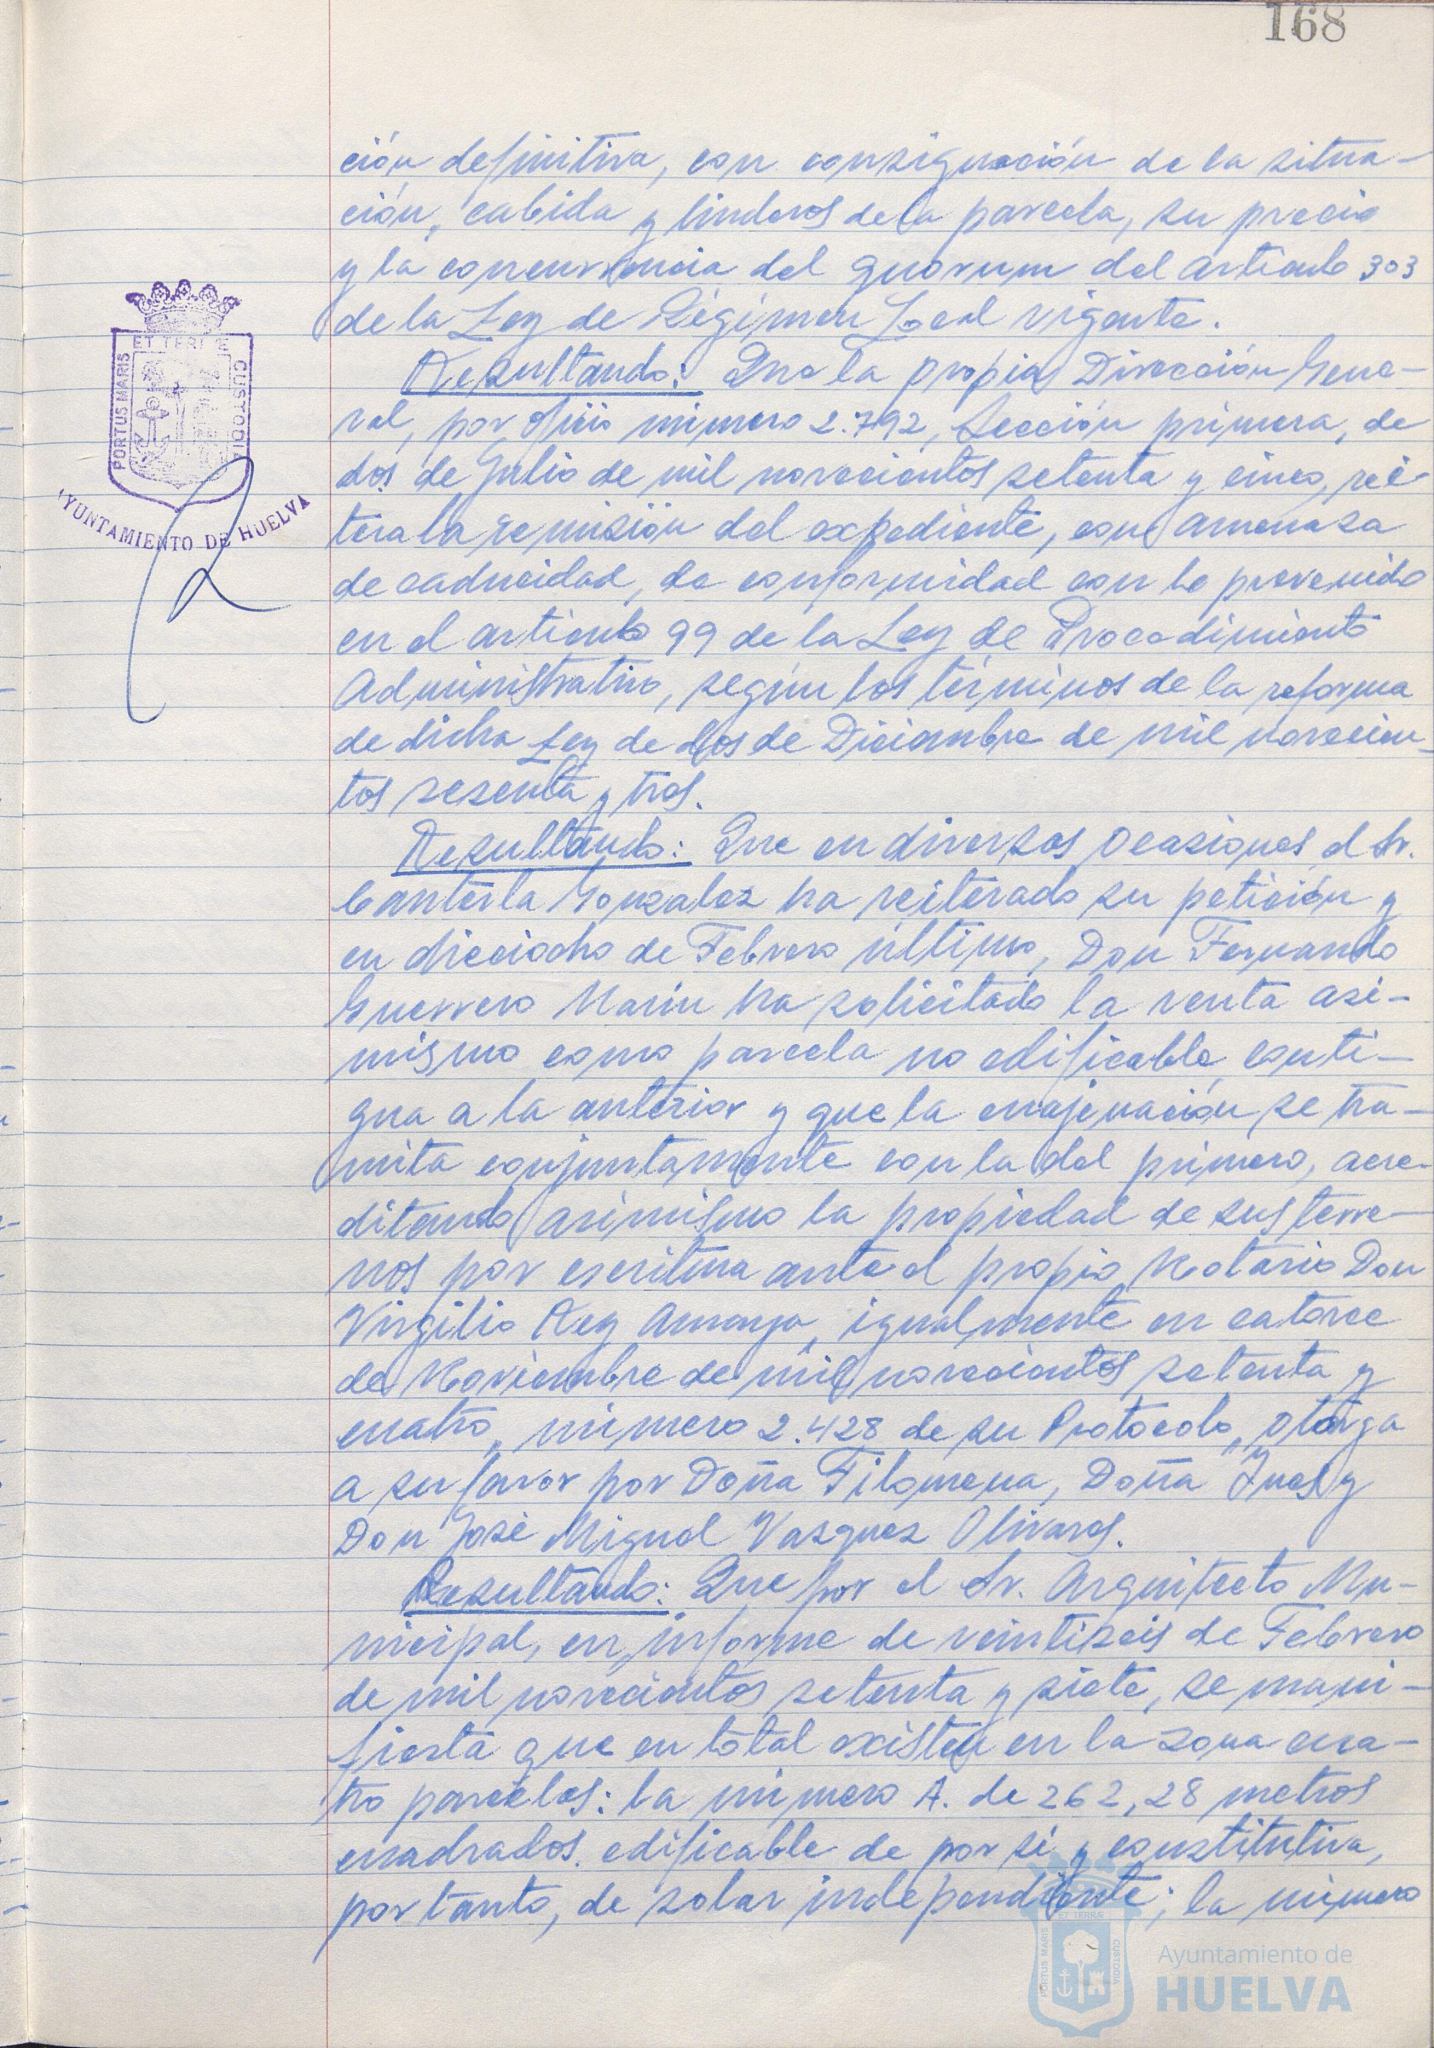 168
ción definitiva, con consignación de la situa-
ción, cabida y linderos de la parcela, su precio
y la concurrencia del quorum del artículo 303
de la Ley de Régimen Local vigente.
Resultando: Que la propia Dirección Gene-
ral, por oficio número 2.792, Sección primera, de
dos de Julio de mil novecientos setenta y cinco, rei-
tera la remisión del expediente, con amenaza
de caducidad, de conformidad con lo prevenido
en el artículo 99 de la Ley de Procedimiento
Administrativo, según los términos de la reforma
de dicha Ley de dos de Diciembre de mil novecien-
tos sesenta y tres.
Resultando: Que en diversas ocasiones, el Sr.
Canterla Gonzalez ha reiterado su petición y
en dieciocho de Febrero último, Don Fernando
Guerrero Marin ha solicitado la venta asi-
mismo como parcela no edificable conti-
gua a la anterior y que la enajenación se tra-
mita conjuntamente con la del primero, acre-
ditando asimismo la propiedad de sus terre-
nos por escritura ante el propio Notario Don
Virgilio Rey Amaya, igualmente en catorce
de Noviembre de mil novecientos setenta y
cuatro, número 2.428 de su Protocolo, otorga
a su favor por Doña Filomena, Doña Ines y
Don José Miguel Vazquez Olivares.
Resultando: Que por el Sr. Arquitecto Mu-
nicipal, en informe de veintiseis de Febrero
de mil novecientos setenta y siete, se mani-
fiesta que en total existen en la zona cua-
tro parcelas: la número A. de 262,28 metros
cuadrados. edificable de por si y constitutiva,
por tanto, de solar independiente; la número
PORTUS MARIS ET TERRÆ CUSTODIA
AYUNTAMIENTO DE HUELVA
PORTUS MARIS ET TERRÆ CUSTODIA
Ayuntamiento de
HUELVA